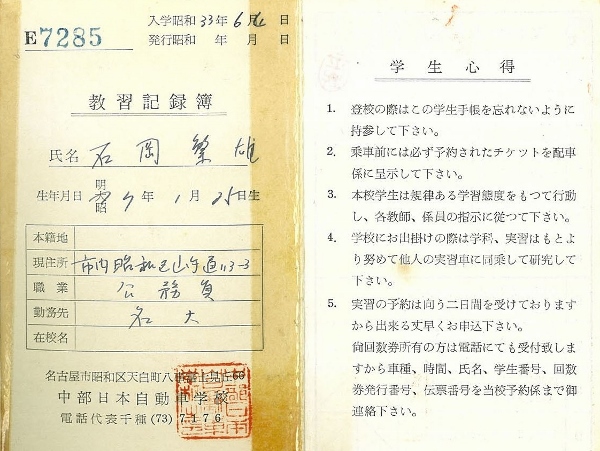 E7285
入学昭和33年6月 日
発行昭和 年 月 日
教習記録簿
氏名 石岡繁雄
生年月日 明 大 昭 7年1月25日生
本籍地
現住所 市内昭和区山手通り3-3
職業 公務員
勤務先 名大
在校名
名古屋市昭和区天白町八事
中部日本自動車学校
電話代表千種(73)7176
学生心得
1. 登校の際はこの学生手帳を忘れないように
持参して下さい。
2. 乗車前には必ず予約されたチケットを配車
係に呈示して下さい。
3. 本校学生は規律ある学習態度をもつて行動
し、各教師、係員の指示に従つて下さい。
4. 学校にお出掛けの際は学科、実習はもとよ
り努めて他人の実習車に同乗して研究して
下さい。
5. 実習の予約は向う二日間を受けております
から出来る丈早くお申込下さい。
尚回数券所有の方は電話にても受付致しま
すから車種、時間、氏名、学生番号、回数
券発行番号、伝票番号を当校予約係まで御
連絡下さい。